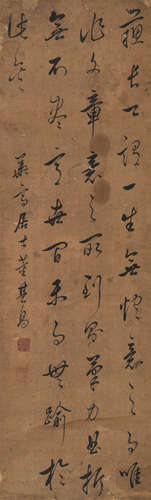 蘇長公謂一生無快意之事唯
作文章意之所到則筆力曲折
無不盡意世間樂事無踰於
此矣
華亭居士董其昌